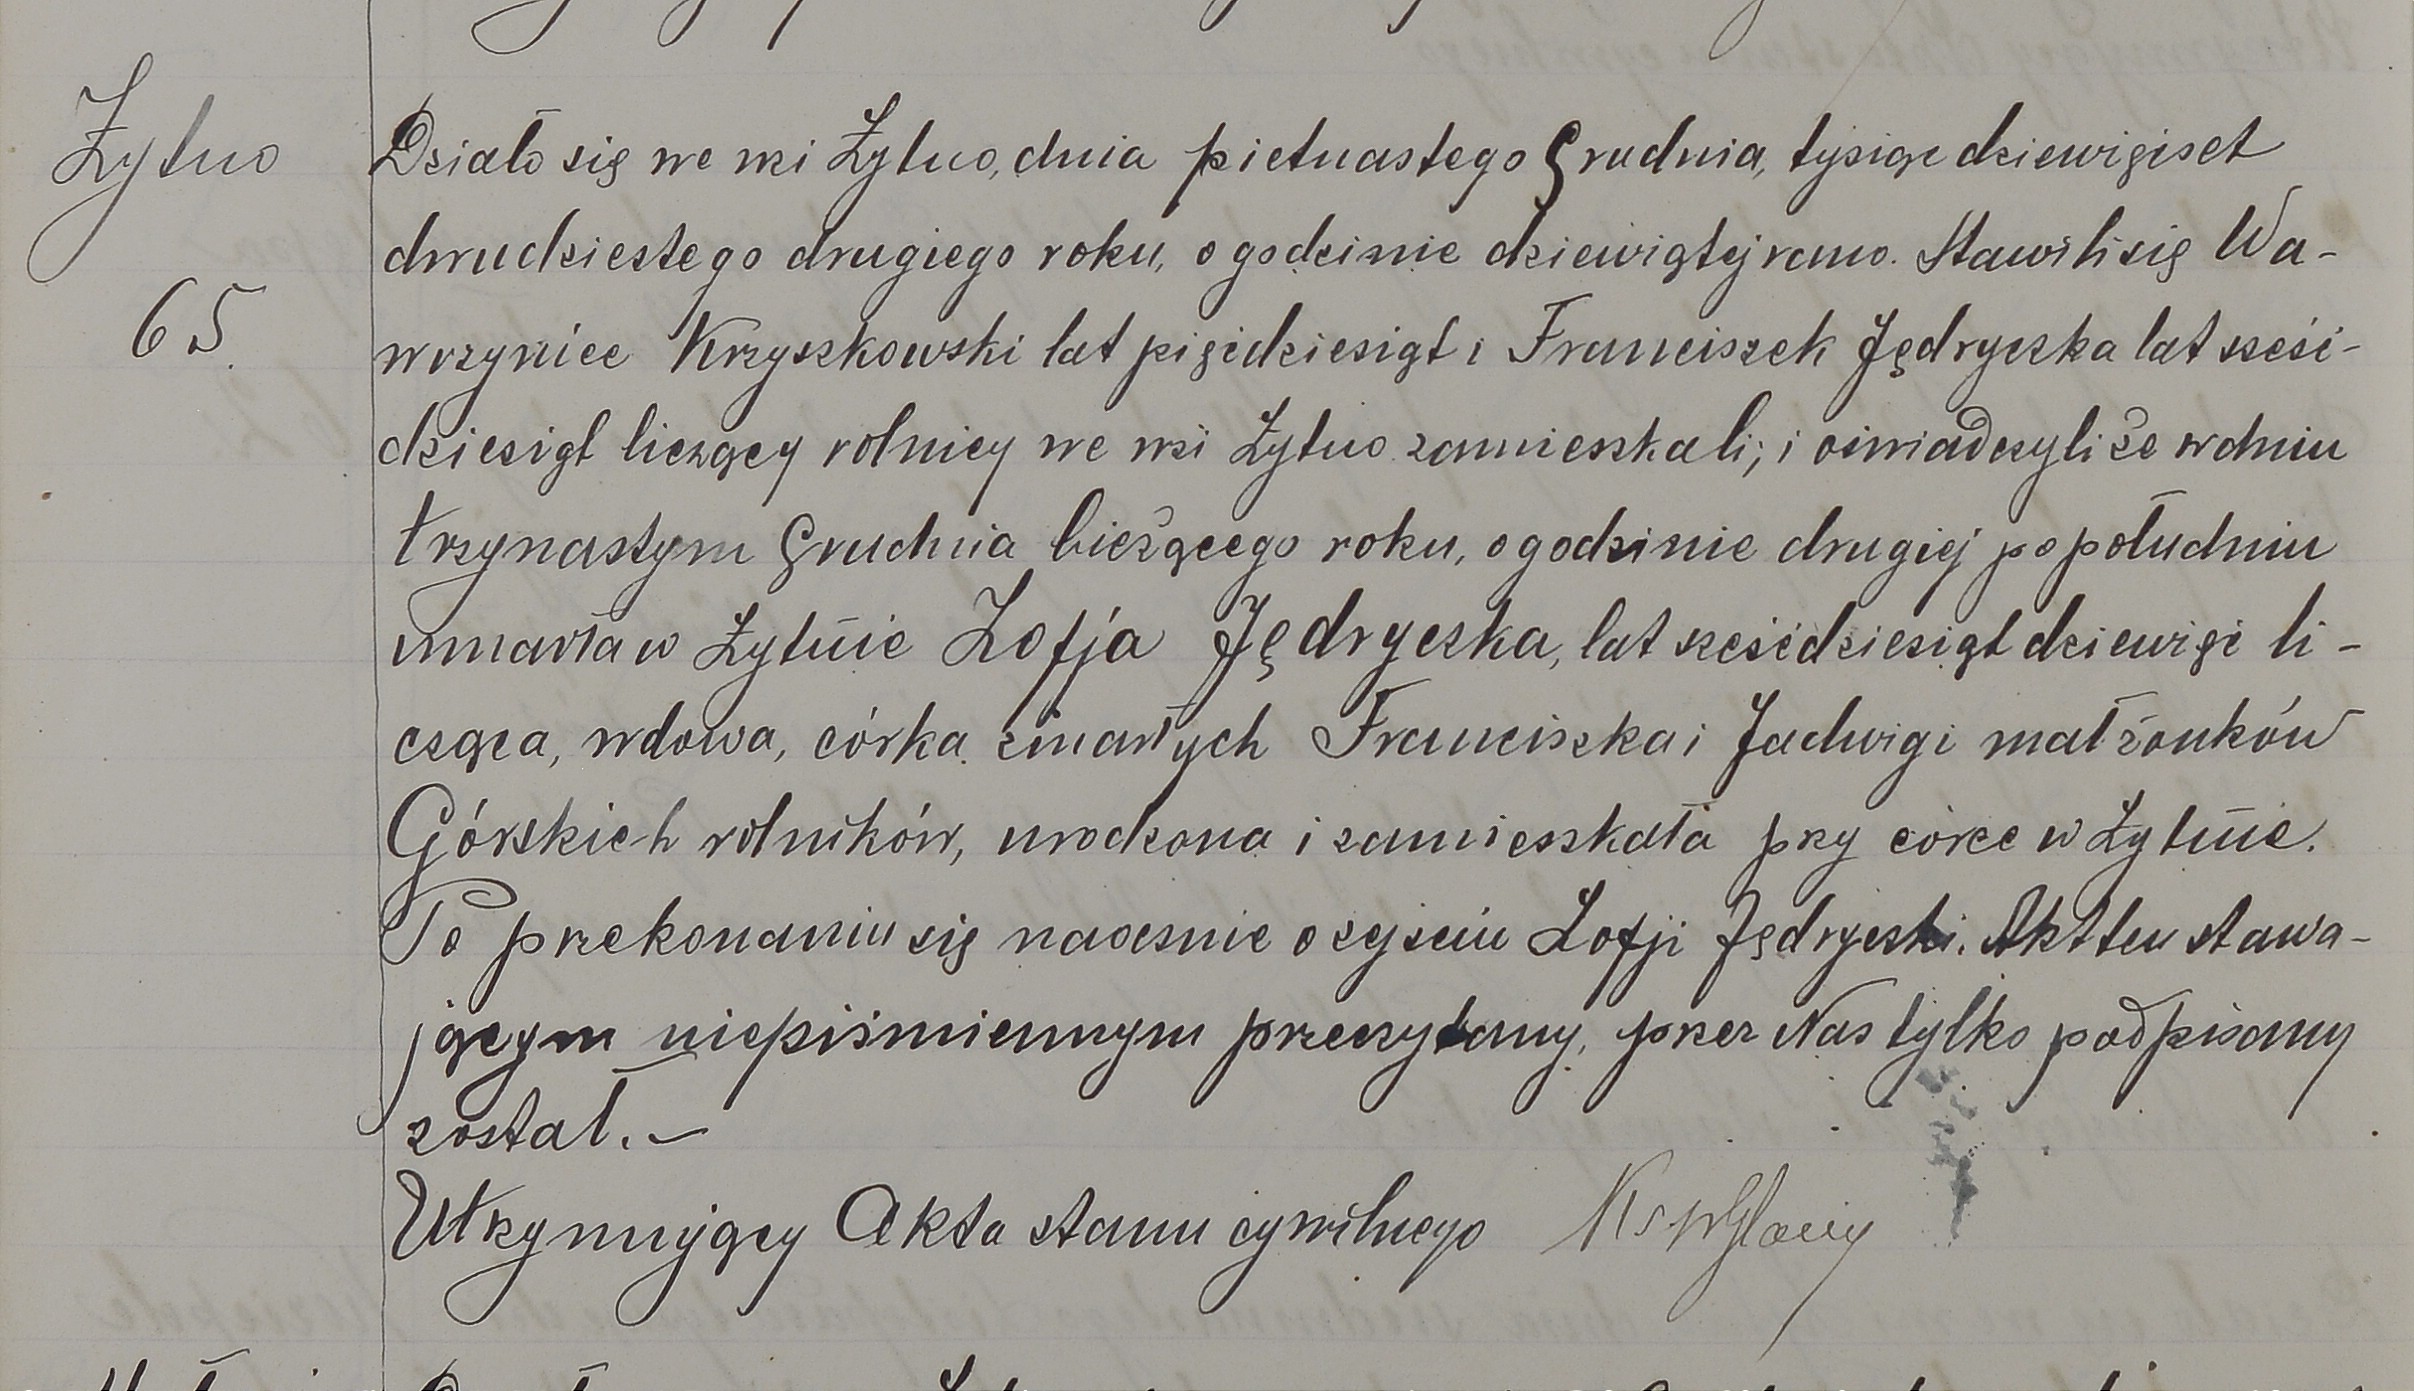 Żytno
65.
Działo się we wsi Żytno, dnia pietnastego Grudnia, tysiąc dziewięćset
dwudziestego drugiego roku, o godzinie dziewiątej rano. Stawili się Wa-
wrzyniec Kryszkowski lat pięćdziesiąt i Franciszek Jędryczka lat sześć-
dziesiąt liczący rolnicy we wsi Żytno zamieszkali; i oświadczyli że w dniu
trzynastym Grudnia bieżącego roku, o godzinie drugiej po południu
umarła w Żytnie Zofja Jędryczka, lat sześćdziesiąt dziewięć li-
cząca, wdowa, córka zmarłych Franciszka i Jadwigi małżonków
Górskich rolników, urodzona i zamieszkała przy córce w Żytnie.
Po przekonaniu się naocznie o zejściu Zofji Jędryczki. Akt ten stawa-
jącym niepiśmiennym przeczytany, przez Nas tylko podpisany
został. —
Utrzymujący Akta stanu cywilnego